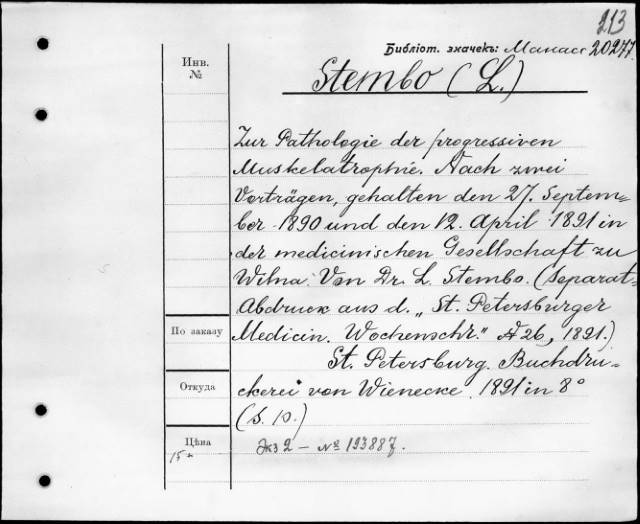 213
Библіот. значекъ: Манасс 20277.
Инв.
№
Stembo (L.)
Zur Pathologie der progressiven
Muskelatrophie. Nach zwei
Vorträgen, gehalten den 27. Septem-
ber 1890 und den 12. April 1891 in
der medicinischen Gesellschaft zu
Wilna. Von Dr. L. Stembo. (Separat-
Abdruck aus d. „St. Petersburger
По заказу
Medicin. Wochenschr." № 26, 1891.)
St. Petersburg. Buchdru-
Откуда
ckerei von Wienecke. 1891 in 8°
(S. 10.)
Цѣна
15к
Экз 2 — № 193887.